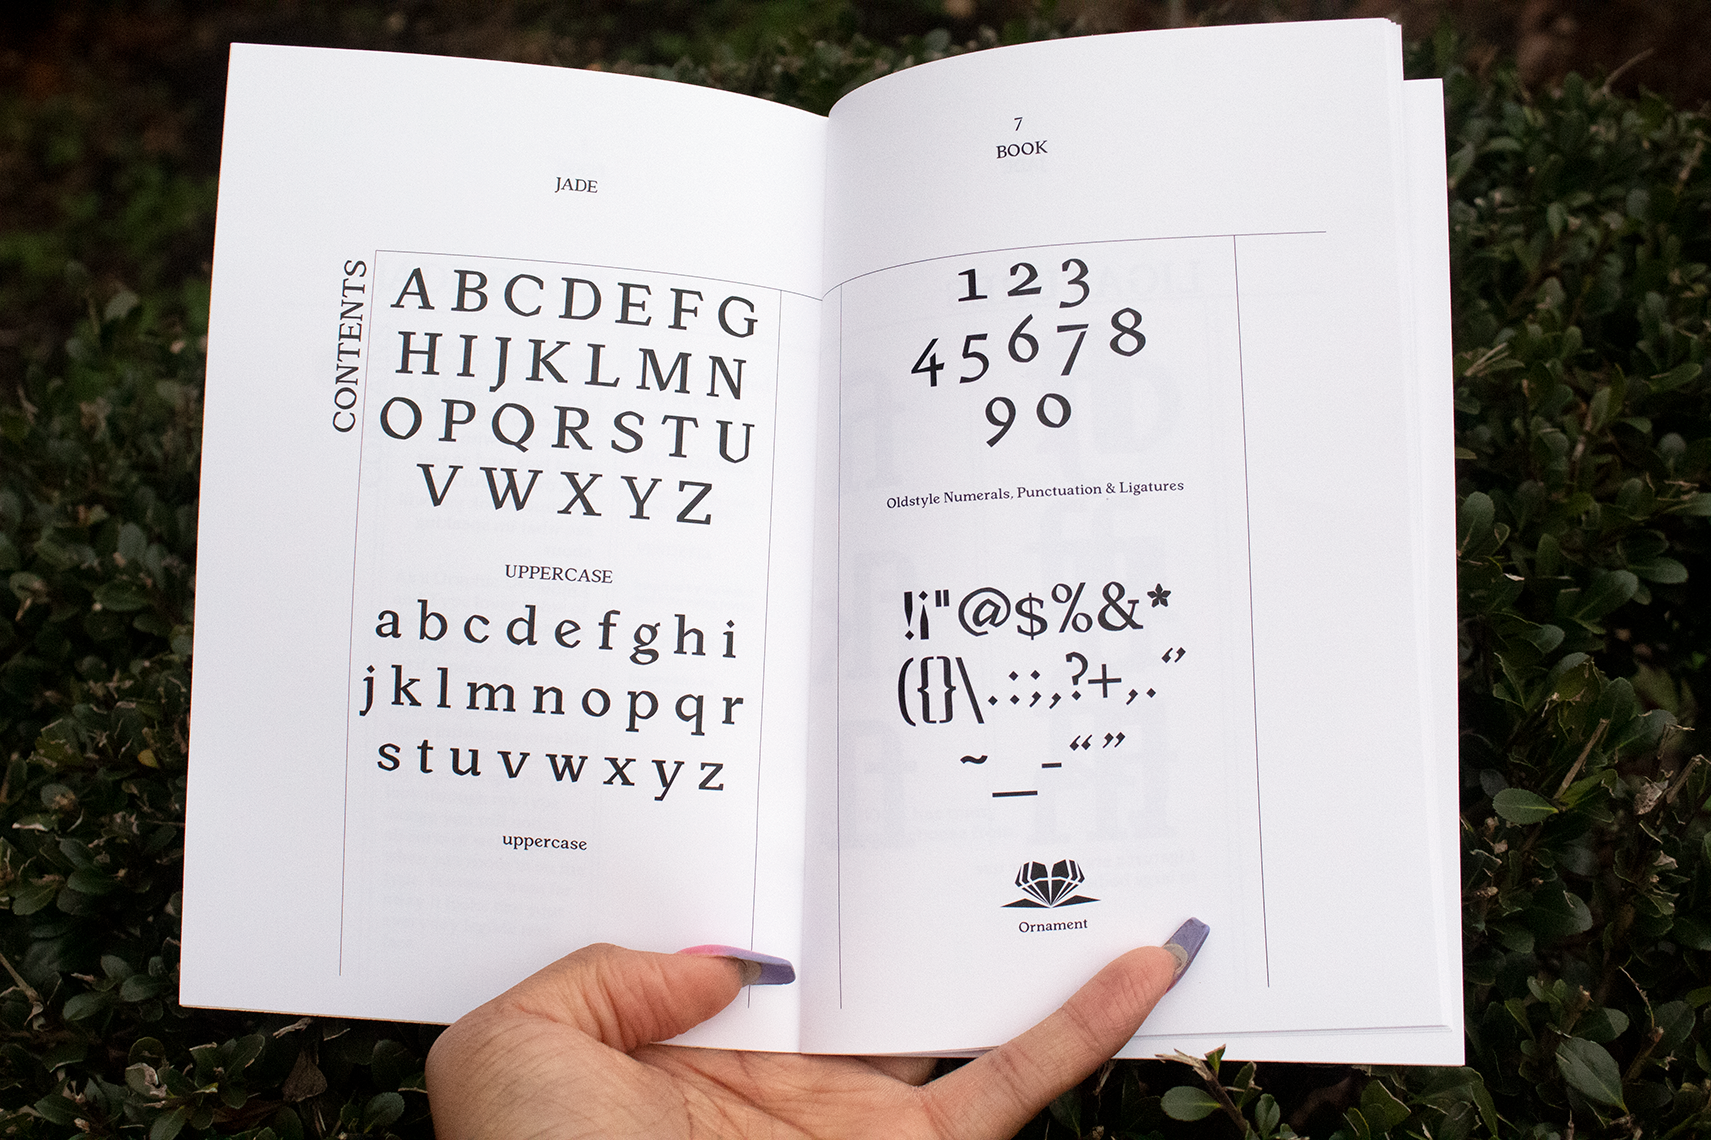 JADE
CONTENTS
A B C D E F G
H I J K L M N
O P Q R S T U
V W X Y Z
UPPERCASE
a b c d e f g h i
j k l m n o p q r
s t u v w x y z
uppercase
7
BOOK
1 2 3
4 5 6 7 8
9 0
Oldstyle Numerals, Punctuation & Ligatures
!¡"@$%&*
({}\.:;,?+,.‘’
~_-“”
Ornament